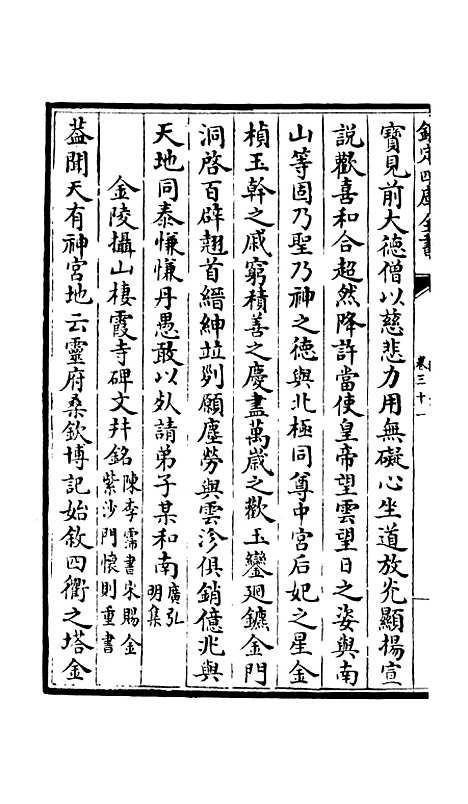 欽定四庫全書
卷三十一
寶見前大徳僧以慈悲力用無礙心坐道放光顯揚宣
說歡喜和合超然降許當使皇帝望雲望日之姿與南
山等固乃聖乃神之徳與北極同尊中宮后妃之星金
楨玉幹之戚窮積善之慶盡萬歲之歡玉鑾迴鑣金門
洞啓百辟翹首縉紳竝列願塵勞與雲沴俱銷億兆與
天地同泰慊慊丹愚敢以死請弟子某和南廣弘
明集
金陵攝山棲霞寺碑文幷銘陳李霈書宋賜金
紫沙門懷則重書
葢聞天有神宮地云靈府桑欽博記始敘四衢之塔金